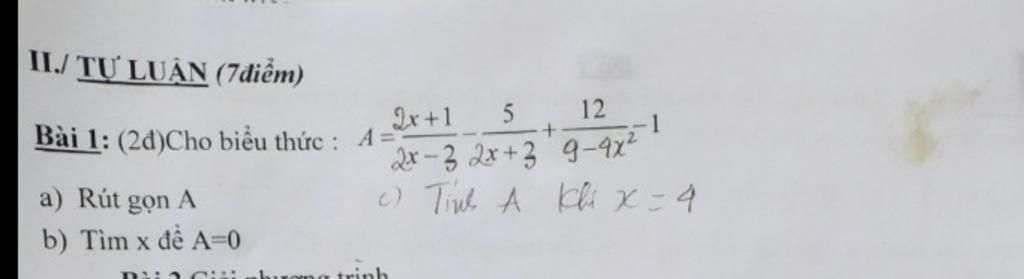 II./ TỰ LUẬN (7điểm)
Bài 1: (2đ)Cho biểu thức : A = (2x+1)/(2x-3) - 5/(2x+3) + 12/(9-4x²) - 1
a) Rút gọn A
c) Tính A khi x = 4
b) Tìm x để A=0